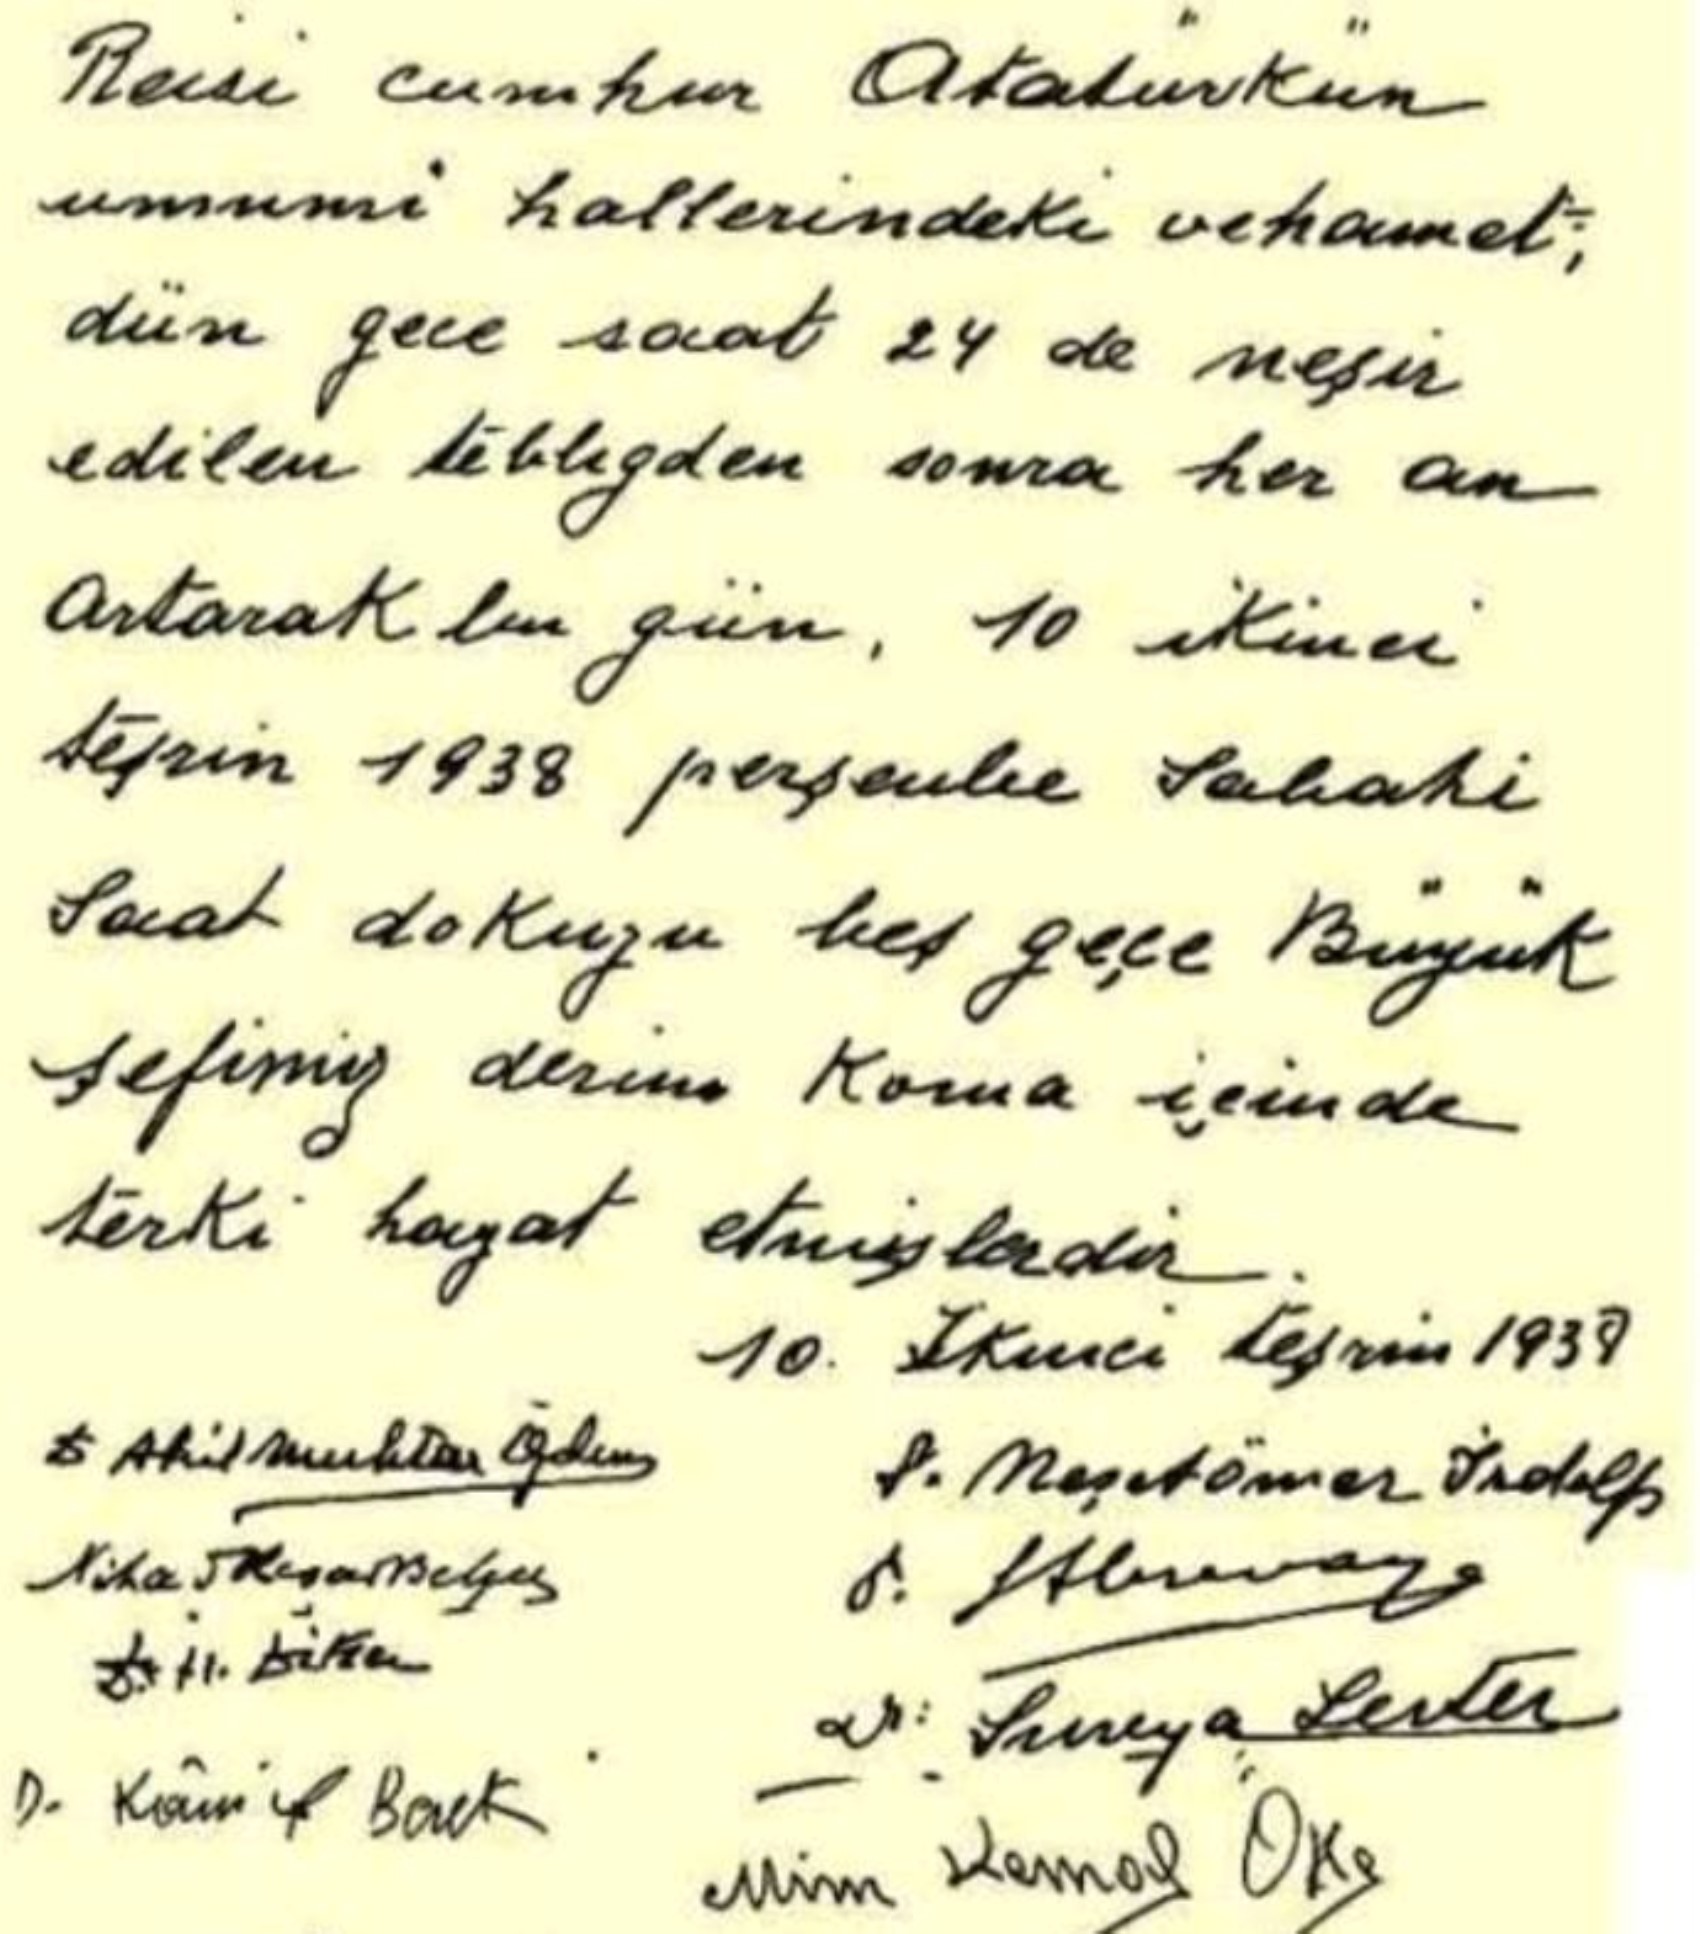 Reisi cumhur Atatürkün
umumi hallerindeki vehamet;
dün gece saat 24 de neşir
edilen tebligden sonra her an
Artarak bu gün, 10 ikinci
teşrin 1938 perşenbe Sabahi
Saat dokuzu beş geçe Büyük
şefimiz derin Koma içinde
terki hayat etmişlerdir.
10. İkinci teşrin 1938
Dr Akil Muhtar Özden
D. Neşetömer İrdelp
Nihad Reşad Belger
D.
Dr. H. Diken
Dr: Süreya Serter
D. Kâmil Berk
Mim Kemal Öke